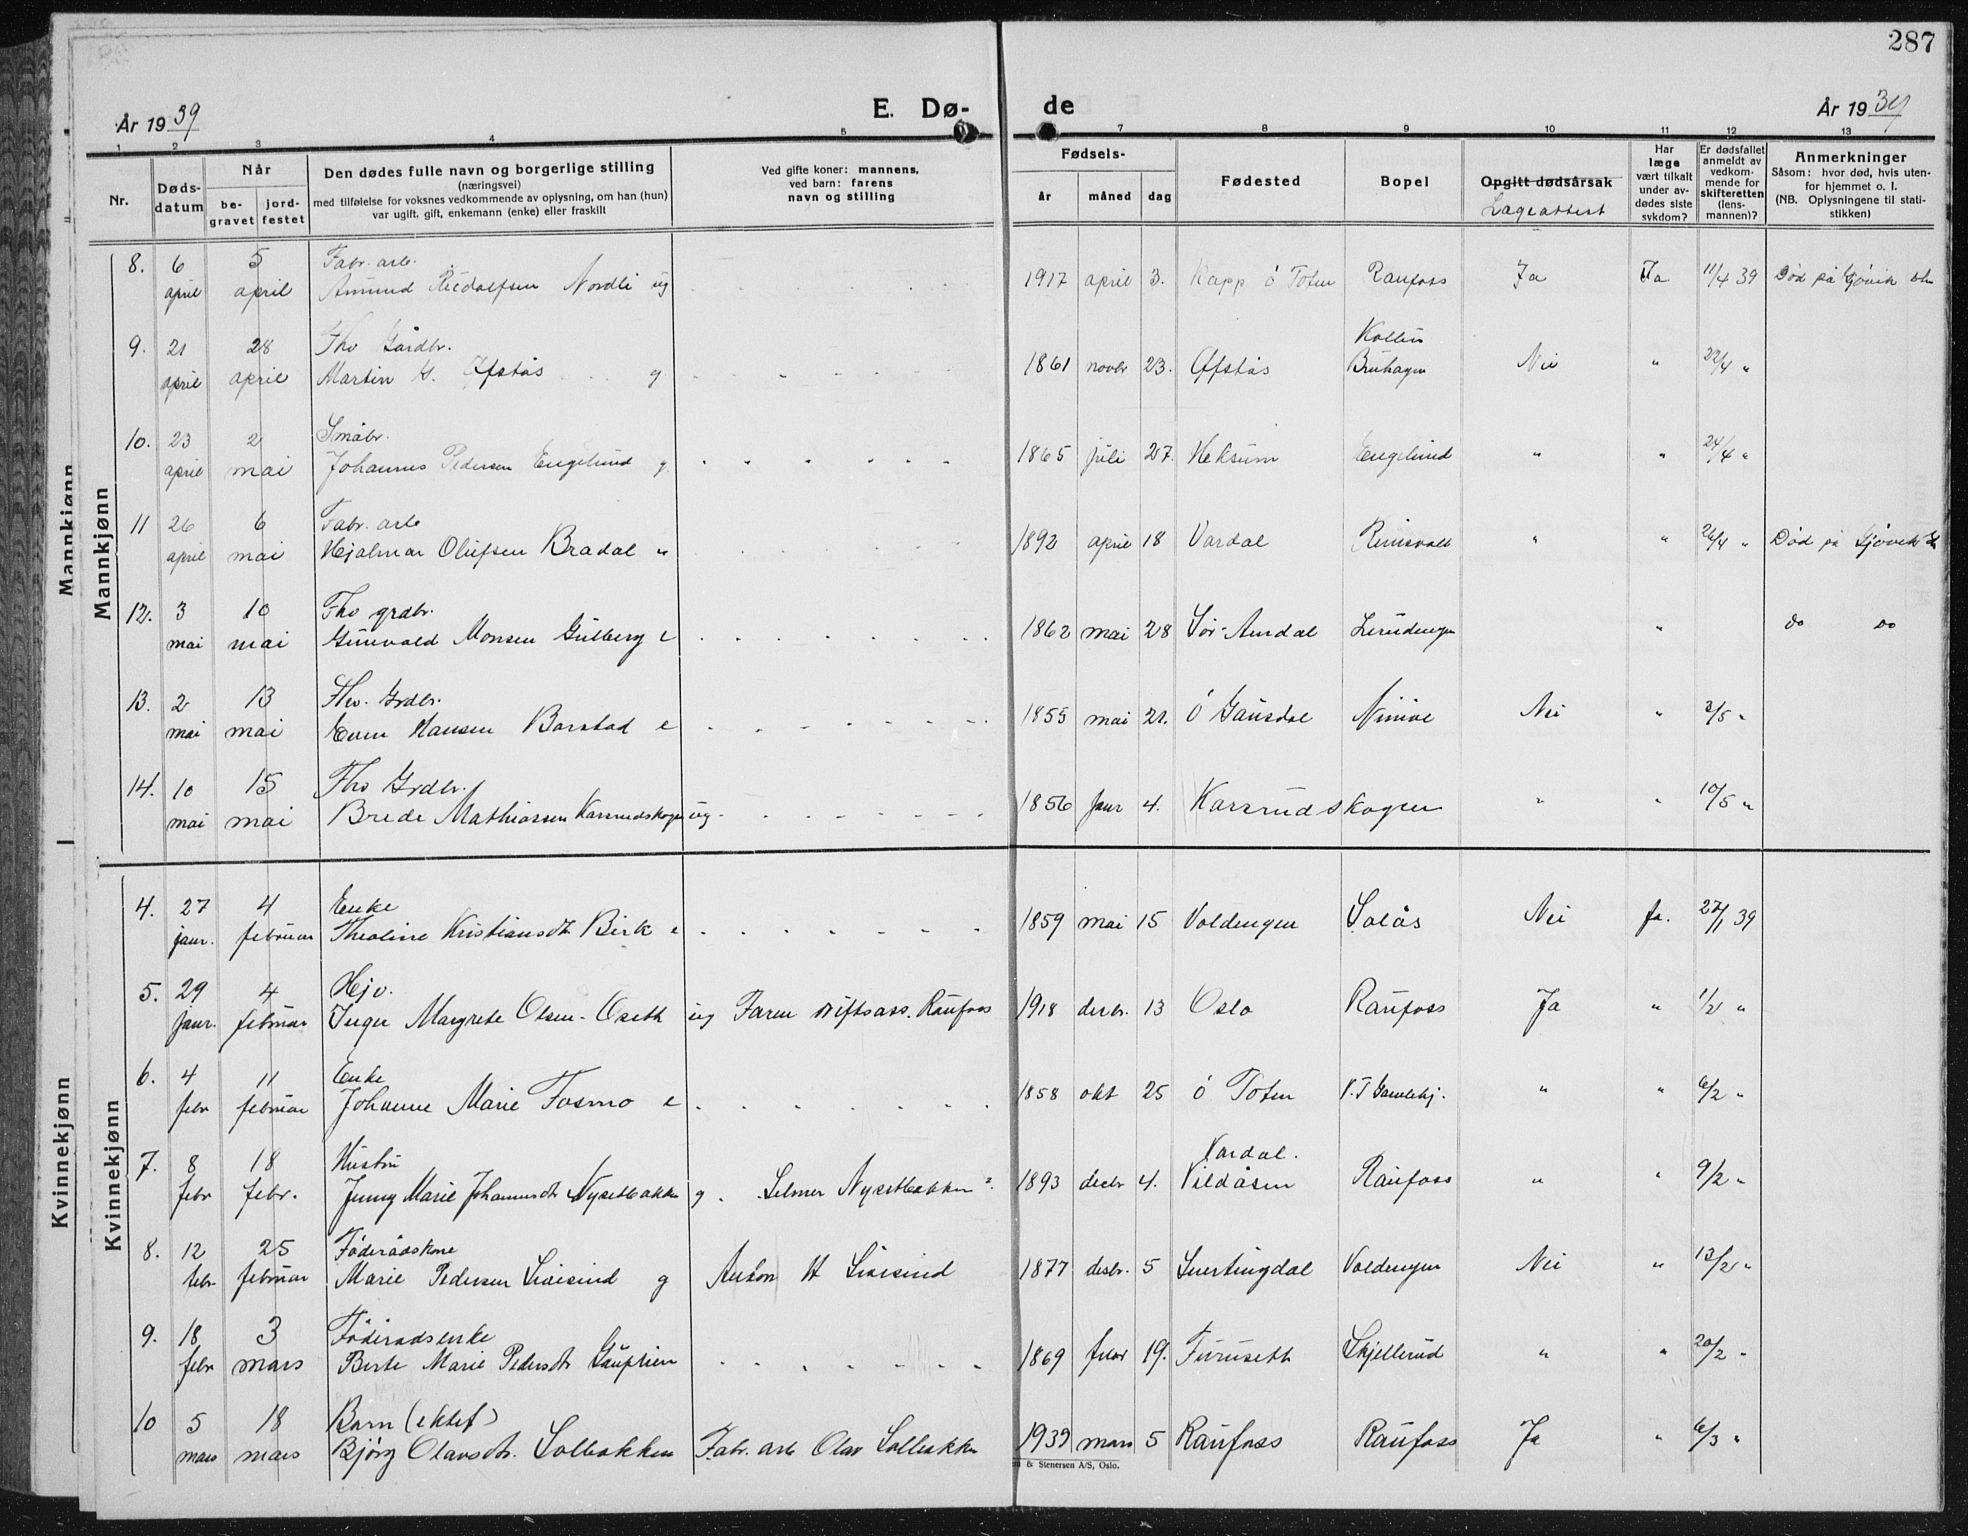 287
År 1939
E. Dø-
de
År 1939
1 2 3 4 5 7 8 9 10 11 12 13
Nr.
Døds-
datum
Når
be-
gravet
jord-
festet
Den dødes fulle navn og borgerlige stilling
(næringsvei)
med tilføielse for voksnes vedkommende av oplysning, om han (hun)
var ugift, gift, enkemann (enke) eller fraskilt
Ved gifte koner: mannens,
ved barn: farens
navn og stilling
Fødsels-
år måned dag
Fødested
Bopel
Opgitt dødsårsak
Lægeattest
Har
læge
vært tilkalt
under av-
dødes siste
sykdom?
Er dødsfallet
anmeldt av
vedkom-
mende for
skifteretten
(lens-
mannen)?
Anmerkninger
Såsom: hvor død, hvis uten-
for hjemmet o. l.
(NB. Oplysningene til stati-
stikken)
Mannkjønn
Mannkjønn
8. 6 5 Fabr. arb.
april april Amund Rudolfsen Nordli ug 1917 april 3. Kapp ö Toten Raufoss Ja Ja 11/4 39 Død på Gjøvik
9. 21 28 Fhv Gårdbr. Kollin
april april Martin G. Ofstås g 1861 novbr 23. Offstås Bruhagen Nei " 22/4 "
10. 23 2 Småbr.
april mai Johannes Pedersen Engelund g. 1865 juli 27. Heksum Engelund " " 24/4 "
11 26 6 Fabr. arb
april mai Hjalmar Olufsen Bradal " 1892 april 18 Vardal " " 26/4 " Død på Gjøvik
12. 3 10 Fhv grdbr.
mai mai Gunvald Monsen Gulberg e 1862 mai 28 Sør-Aurdal Lundengen " do do
13. 2 13 Fhv. Grdbr.
mai mai Even Hansen Barstad e 1855 mai 21. Ö Gausdal Ninive Nei " 2/5 "
14. 10 15 Fhv Grdbr.
mai mai Brede Mathiassen Karsrudskogen ug 1856 Janr 4. Karsrudskogen " " 10/5 "
Kvinnekjønn
Kvinnekjønn
4. 27 4 Enke
janr. februar Theoline Kristiansdt Birk e 1859 mai 15 Voldengen Solås Nei ja. 27/1 39
5. 29 4 Hjv.
janr. februar Inger Margrete Olsen-Oseth ug Faren driftsass. Raufoss 1918 desbr. 13 Oslo Raufoss Ja " 1/2 "
6. 4 11 Enke
febr februar Johanne Marie Fosmo e 1858 okt 25 ö Toten V.T Gamlehj. " " 6/2 "
7. 8 18 Hustru Vardal.
febr febr. Jenny Marie Johannesdt Nysetbakken g. Selmer Nysetbakken 1893 desbr 4. Vildåsen Raufoss " " 9/2 "
8. 12 25 Føderådskone
febr. februar Marie Pedersen g Anton H 1877 desbr. 5 Snertingdal Voldengen Nei " 13/2 "
9. 18 3 Føderadsenke
febr mars Berte Marie Pedersdt Gaupåen 1869 febr 19. Furuseth Skjellerud " " 20/2 "
10 5 18 Barn (ektef)
mars mars Bjørg Olavsdt. Solbakken Fabr. arb Olav Solbakken 1939 mars 5 Raufoss Raufoss Ja " 6/3 "
& Stenersen A/S, Oslo.